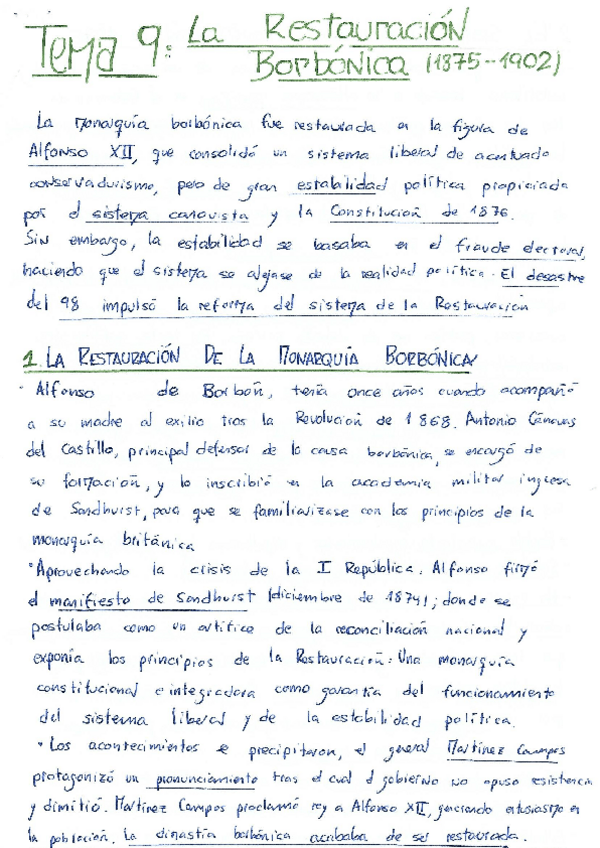 Tema 9: La Restauración
Borbónica (1875--1902)
La Monarquía borbónica fue restaurada en la figura de
Alfonso XII, que consolidó un sistema liberal de acentuado
conservadurismo, pero de gran estabilidad política propiciada
por el sistema canovista y la Constitución de 1876.
Sin embargo, la estabilidad se basaba en el fraude electoral,
haciendo que el sistema se alejase de la realidad política. El desastre
del 98 impulsó la reforma del sistema de la Restauración
1. LA RESTAURACIÓN DE LA MONARQUÍA BORBÓNICA
· Alfonso de Borbón, tenía once años cuando acompañó
a su madre al exilio tras la Revolución de 1868. Antonio Cánovas
del Castillo, principal defensor de la causa borbónica, se encargó de
su formación, y lo inscribió en la academia militar inglesa
de Sandhurst, para que se familiarizase con los principios de la
monarquía británica
· Aprovechando la crisis de la I República, Alfonso firmó
el manifiesto de Sandhurst (diciembre de 1874); donde se
postulaba como un artífice de la reconciliación nacional y
exponía los principios de la Restauración: Una monarquía
constitucional e integradora como garantía del funcionamiento
del sistema liberal y de la estabilidad política.
· Los acontecimientos se precipitaron, el general Martínez Campos
protagonizó un pronunciamiento tras el cual el gobierno no opuso resistencia
y dimitió. Martínez Campos proclamó rey a Alfonso XII, generando entusiasmo en
la población. La dinastía borbónica acababa de ser restaurada.